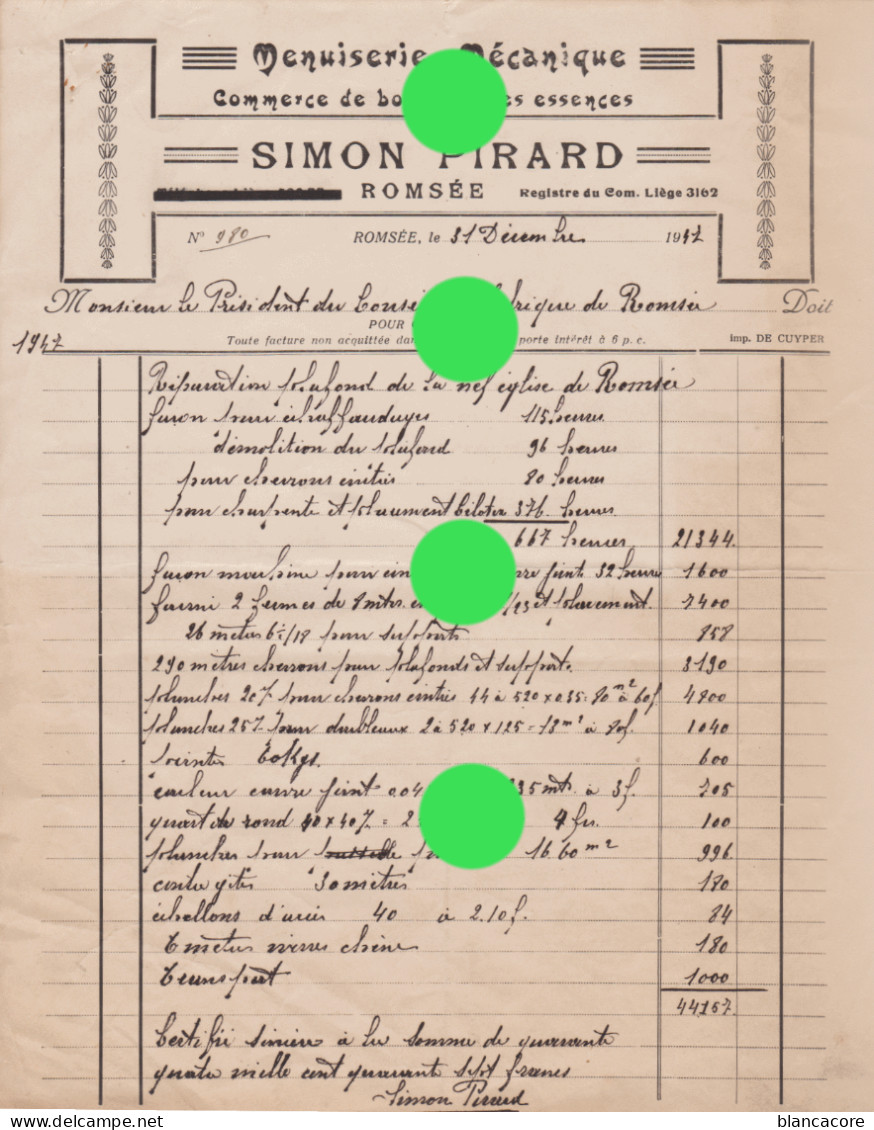 Menuiserie Mécanique
Commerce de bo es essences
SIMON PIRARD
ROMSÉE Registre du Com. Liège 3162
N° 980 ROMSÉE, le 31 Décembre 1947
Monsieur le Président du Conseil de fabrique de Romsée Doit
POUR
1947 Toute facture non acquittée dan porte intérêt à 6 p. c. imp. DE CUYPER
Réparation plafond de la nef église de Romsée
façon pour échaffaudages 115 heures
démolition du plafond 96 heures
pour chevrons cintrés 80 heures
pour charpente et placement 376 heures
667 heures 21344.
façon machine pour joint 32 heures 1600
fourni 2 fermes de et placement. 7400
26 mètres 6/18 pour supports 858
290 mètres chevrons pour plafonds et supports. 3190
planches 20% pour chevrons cintrés 44 à 520 x 0.35 = 80 m² à 60f 4800
planches 25% pour doubleaux 2 à 520 x 125 = 13 m² à 80f. 1040
pointes Kgs. 600
couvre joint 0.04 235 mts. à 3f. 705
quart de rond 40 x 40% = 2 4 frs. 100
planches pour 16.60 m² 996.
contre gîtes 30 mètres 180
échellons d'acier 40 à 2.10f. 84
6 mètres chêne 180
Transport 1000
44157.
Certifié sincère à la somme de quarante
quatre mille cent quarante sept francs
Simon Pirard
blancacore